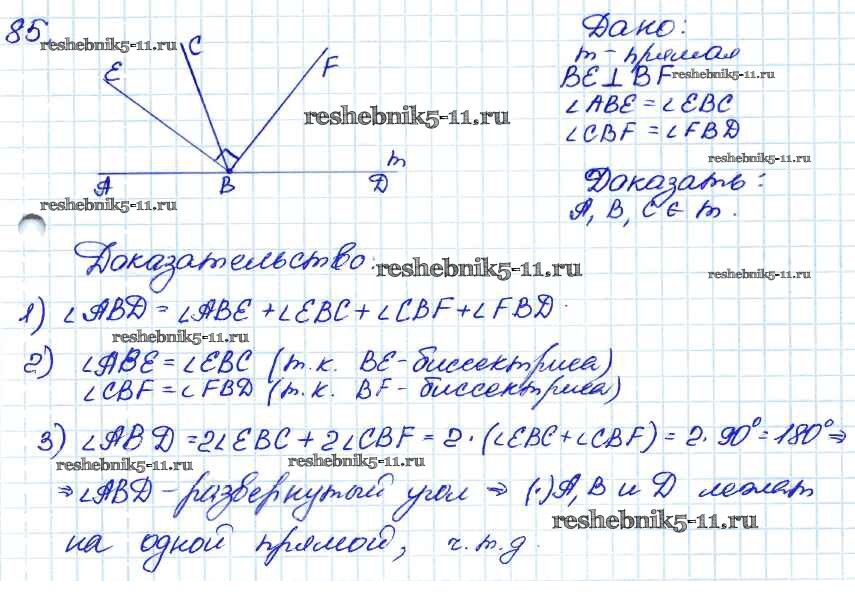 85.
reshebnik5-11.ru
C
E
F
reshebnik5-11.ru
A
B
m
D
reshebnik5-11.ru
Дано:
m - прямая
BE ⊥ BF reshebnik5-11.ru
∠ABE = ∠EBC
∠CBF = ∠FBD
reshebnik5-11.ru
Доказать:
A, B, C ∈ m.
Доказательство: reshebnik5-11.ru
reshebnik5-11.ru
1) ∠ABD = ∠ABE + ∠EBC + ∠CBF + ∠FBD.
reshebnik5-11.ru
2) ∠ABE = ∠EBC (т.к. BE - биссектриса)
∠CBF = ∠FBD (т.к. BF - биссектриса)
3) ∠ABD = 2∠EBC + 2∠CBF = 2·(∠EBC + ∠CBF) = 2·90° = 180° ⇒
reshebnik5-11.ru reshebnik5-11.ru
⇒ ∠ABD - развернутый угол ⇒ (·) A, B и D лежат
reshebnik5-11.ru
на одной прямой, ч.т.д.